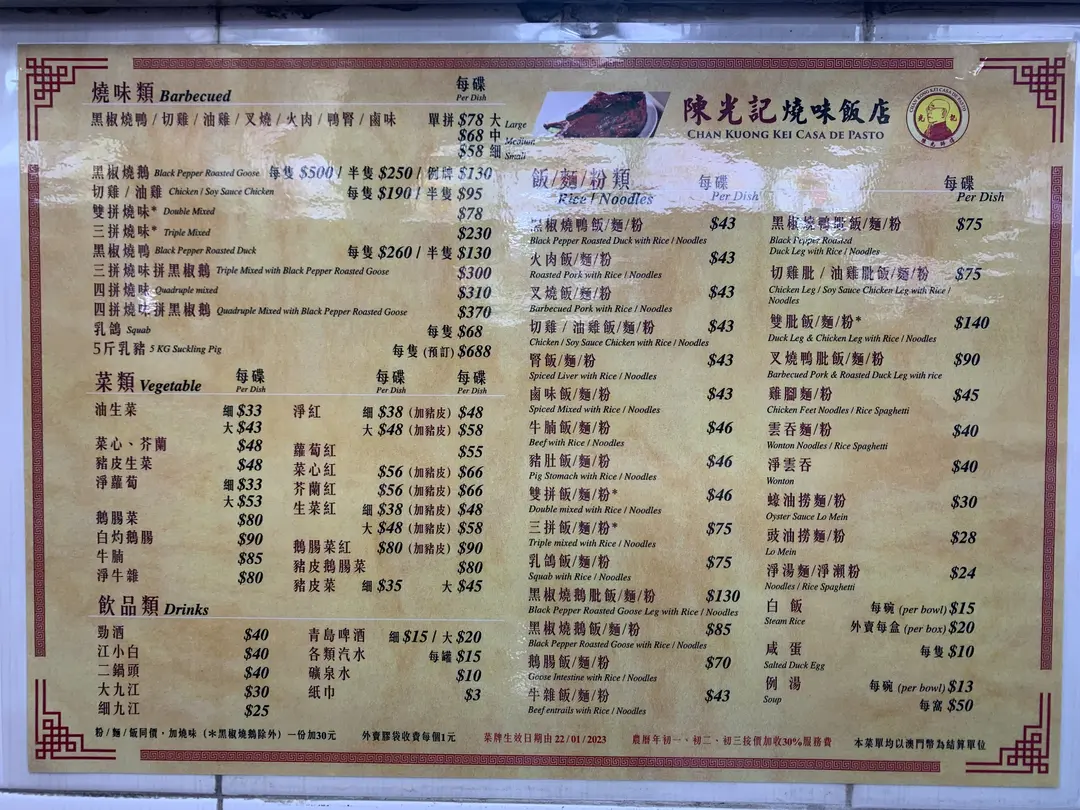 燒味類 Barbecued 每碟 Per Dish
黑椒燒鴨 / 切雞 / 油雞 / 叉燒 / 火肉 / 鴨腎 / 鹵味 單拼 $78 大 Large
$68 中 Medium
$58 細 Small
黑椒燒鵝 Black Pepper Roasted Goose 每隻 $500 / 半隻 $250 / 例牌 $130
切雞 / 油雞 Chicken / Soy Sauce Chicken 每隻 $190 / 半隻 $95
雙拼燒味* Double Mixed $78
三拼燒味* Triple Mixed $230
黑椒燒鴨 Black Pepper Roasted Duck 每隻 $260 / 半隻 $130
三拼燒味拼黑椒鵝 Triple Mixed with Black Pepper Roasted Goose $300
四拼燒味 Quadruple mixed $310
四拼燒味拼黑椒鵝 Quadruple Mixed with Black Pepper Roasted Goose $370
乳鴿 Squab 每隻 $68
5斤乳豬 5 KG Suckling Pig 每隻 (預訂) $688
菜類 Vegetable 每碟 Per Dish 每碟 Per Dish 每碟 Per Dish
油生菜 細 $33
大 $43
菜心、芥蘭 $48
豬皮生菜 $48
淨蘿蔔 細 $33
大 $53
鵝腸菜 $80
白灼鵝腸 $90
牛腩 $85
淨牛雜 $80
淨紅 細 $38 (加豬皮) $48
大 $48 (加豬皮) $58
蘿蔔紅 $55
菜心紅 $56 (加豬皮) $66
芥蘭紅 $56 (加豬皮) $66
生菜紅 細 $38 (加豬皮) $48
大 $48 (加豬皮) $58
鵝腸菜紅 $80 (加豬皮) $90
豬皮鵝腸菜 $80
豬皮菜 細 $35 大 $45
飲品類 Drinks
勁酒 $40
江小白 $40
二鍋頭 $40
大九江 $30
細九江 $25
青島啤酒 細 $15 / 大 $20
各類汽水 每罐 $15
礦泉水 $10
紙巾 $3
陳光記燒味飯店
CHAN KUONG KEI CASA DE PASTO
CHAN KUONG KEI CASA DE PASTO
飯/麵/粉類 每碟
Rice / Noodles Per Dish
黑椒燒鴨飯/麵/粉 $43
Black Pepper Roasted Duck with Rice / Noodles
火肉飯/麵/粉 $43
Roasted Pork with Rice / Noodles
叉燒飯/麵/粉 $43
Barbecued Pork with Rice / Noodles
切雞 / 油雞飯/麵/粉 $43
Chicken / Soy Sauce Chicken with Rice / Noodles
腎飯/麵/粉 $43
Spiced Liver with Rice / Noodles
鹵味飯/麵/粉 $43
Spiced Mixed with Rice / Noodles
牛腩飯/麵/粉 $46
Beef with Rice / Noodles
豬肚飯/麵/粉 $46
Pig Stomach with Rice / Noodles
雙拼飯/麵/粉* $46
Double mixed with Rice / Noodles
三拼飯/麵/粉* $75
Triple mixed with Rice / Noodles
乳鴿飯/麵/粉 $75
Squab with Rice / Noodles
黑椒燒鵝肶飯/麵/粉 $130
Black Pepper Roasted Goose Leg with Rice / Noodles
黑椒燒鵝飯/麵/粉 $85
Black Pepper Roasted Goose with Rice / Noodles
鵝腸飯/麵/粉 $70
Goose Intestine with Rice / Noodles
牛雜飯/麵/粉 $43
Beef entrails with Rice / Noodles
每碟
Per Dish
黑椒燒鴨肶飯/麵/粉 $75
Black Pepper Roasted
Duck Leg with Rice / Noodles
切雞肶 / 油雞肶飯/麵/粉 $75
Chicken Leg / Soy Sauce Chicken Leg with Rice /
Noodles
雙肶飯/麵/粉* $140
Duck Leg & Chicken Leg with Rice / Noodles
叉燒鴨肶飯/麵/粉 $90
Barbecued Pork & Roasted Duck Leg with rice
雞腳麵/粉 $45
Chicken Feet Noodles / Rice Spaghetti
雲吞麵/粉 $40
Wonton Noodles / Rice Spaghetti
淨雲吞 $40
Wonton
蠔油撈麵/粉 $30
Oyster Sauce Lo Mein
豉油撈麵/粉 $28
Lo Mein
淨湯麵/淨瀨粉 $24
Noodles / Rice Spaghetti
白飯 每碗 (per bowl) $15
Steam Rice 外賣每盒 (per box) $20
咸蛋 每隻 $10
Salted Duck Egg
例湯 每碗 (per bowl) $13
Soup 每窩 $50
粉/麵/飯同價，加燒味 (＊黑椒燒鵝除外) 一份加30元 外賣膠袋收費每個1元 菜牌生效日期由 22/01/2023 農曆年初一、初二、初三按價加收30%服務費 本菜單均以澳門幣為結算單位